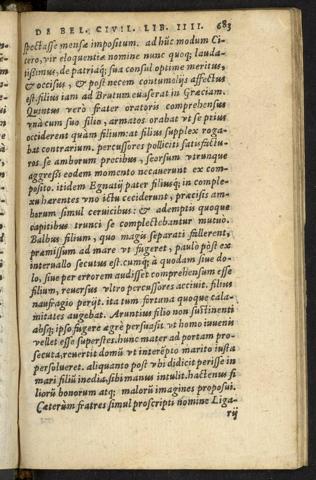 DE BEL. CIVIL. LIB. IIII. 683
spectasse mensæ impositum. ad hûc modum Ci
cero, vir eloquentiæ nomine nunc quoq; lauda-
tissimus, de patriaq; sua consul optime meritus,
& occisus, & post necem contumelijs affectus
est. filius iam ad Brutum euaserat in Græciam.
Quintus verò frater oratoris comprehensus
vnà cum suo filio, armatos orabat vt se priùs
occiderent quàm filium: at filius supplex roga-
bat contrarium. percussores polliciti satisfactu-
ros se amborum precibus, seorsum vtrunque
aggressi eodem momento necauerunt ex com-
posito. itidem Egnatij pater filiusq; in comple-
xu hærentes vno ictu ceciderunt, præcisis am-
borum simul ceruicibus: & ademptis quoque
capitibus trunci se complectebantur mutuo.
Balbus filium, quo magis separati fallerent,
præmissum ad mare vt fugeret, paulò pòst ex
interuallo secutus est. cumq; à quodam siue do-
lo, siue per errorem audisset comprehensum esse
filium, reuersus vltro percussores acciuit. filius
naufragio perijt. ita tum fortuna quoque cala-
mitates augebat. Aruntius filio non sustinenti
absq; ipso fugere ægrè persuasit vt homo iuuenis
vellet esse superstes. hunc mater ad portam pro-
secuta, reuertit domū vt interēpto marito iusta
persolueret. aliquanto pòst vbi didicit perisse in
mari filiū inedia, sibi manus intulit. hactenus fi
liorū bonorum atq; malorū imagines proposui.
Cæterùm fratres simul proscripti nomine Liga-
rij